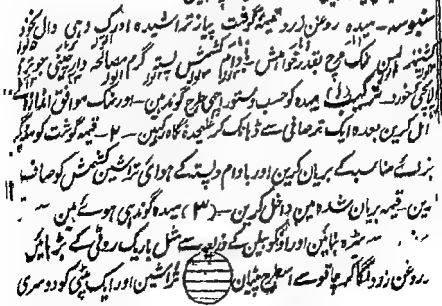 سنبوسہ - میدہ روغن زرد قیمہ گوشت پیاز تراشیدہ ادرک دہی دال نخود
کشنیز لہسن نمک مرچ بقدر خواہش - بادام کشمش پستہ گرم مصالحہ دارچینی
الائچی خورد - ترکیب (۱) میدہ کو حسب دستور اچھی طرح گوندہین - اور نمک موافق اندازہ
امل کرین بعدہ ایک تر صافی سے ڈہانک کر علیحدہ نگاہ رکہین - ۲ - قیمہ گوشت کو مذکور
بزلئے مناسب کے بریان کرین اور بادام و پستہ کے ہوائی تراشین کشمش کو صاف
ین - قیمہ بریان شدہ مین داخل کرین - (۳) میدہ گوندہی ہوئے مین
بنائین اور اوکو بیلن کے ذریعہ سے مثل باریک روٹی کے بڑہائین
روغن زرد لگا کر چاقو سے اسطرح پٹیان تراشین اور ایک پٹی کو دوسری